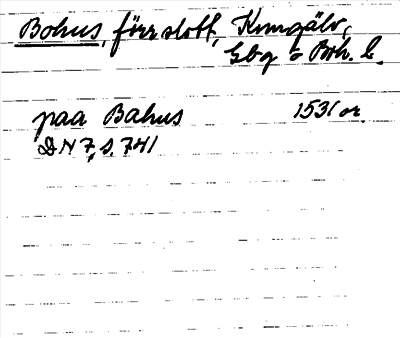 Bohus, förr slott, Kungälv,
Gbg o Boh. l.
paa Bahus 1531 or.
DN 7, s. 741